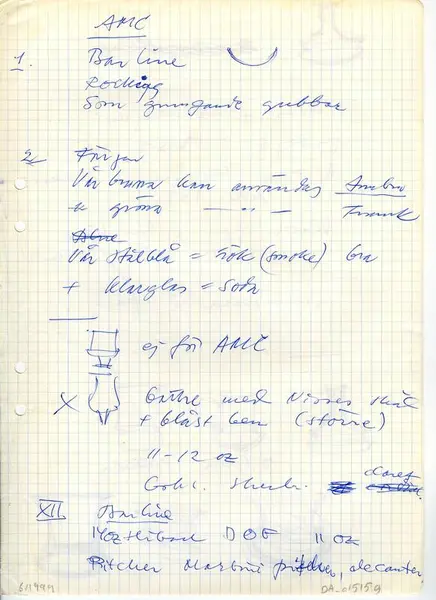 AMC
1. Bar line
Rocking
Som gungande gubbar
2. Färger
Vår bruna kan användas Ambra
" gröna — " —
Vår stålblå = rök (smoke) bra
+ klarglas = soda
ej för AMC
X med Nisses skål
+ blåst ben (större)
11-12 oz
XII Barline
DOF 11 oz
Pitcher Martini pitcher, decanter
611994